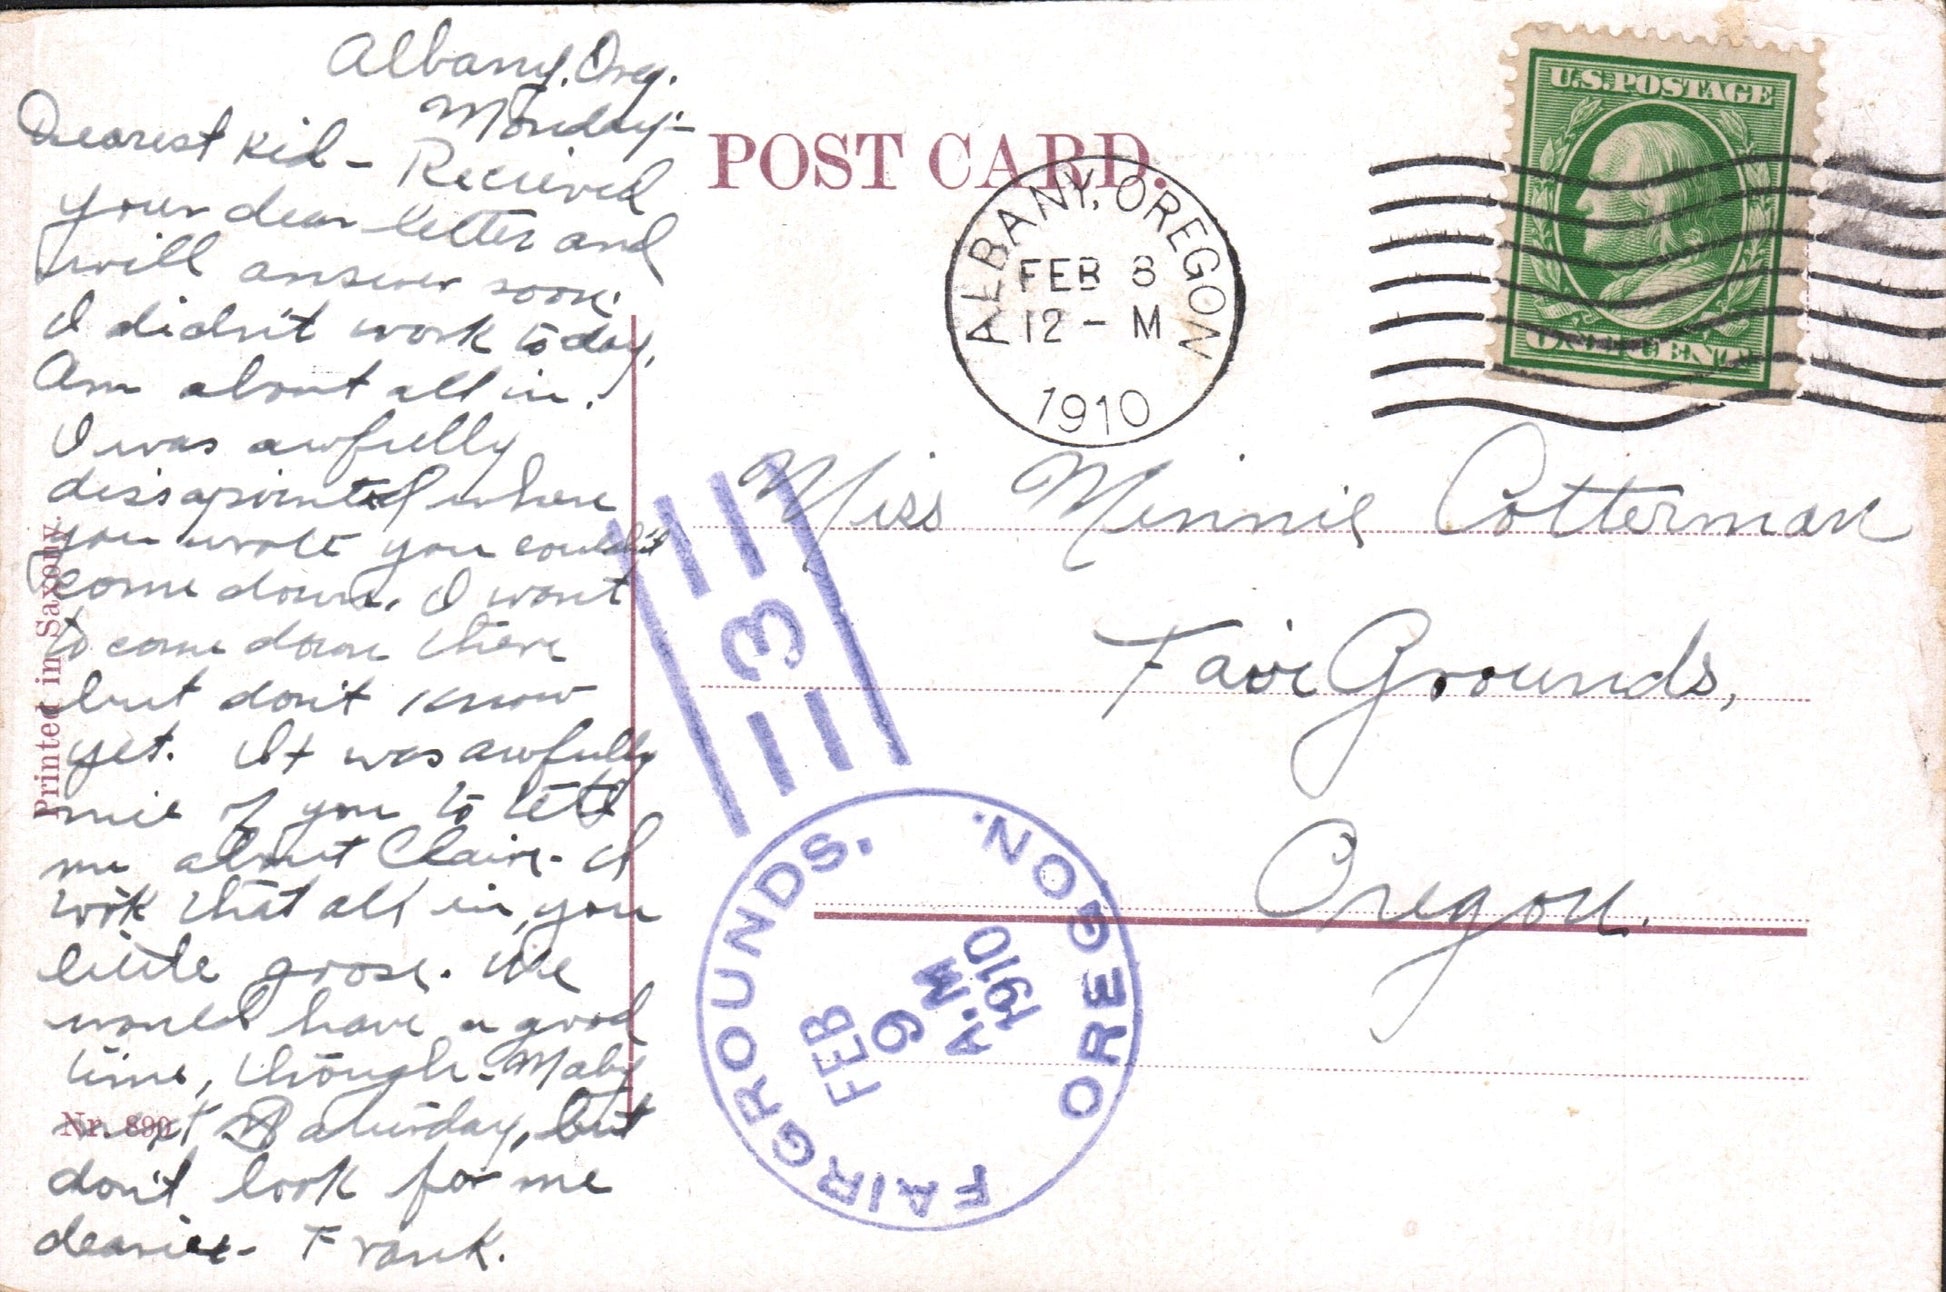 Albany, Oreg.
Monday:-
Dearest Kid - Recieved
your dear letter and
will answer soon.
I didn't work today.
Am about all in.
I was awfully
dissapointed when
you wrote you couldn't
come down. I want
to come down there
but don't know
yet. It was awfully
nice of you to tell
me about Claire - I
that all in, you
little goose. We
would have a good
time, though - Maby
next Saturday, but
don't look for me
dearie - Frank.
Printed in Saxony.
Nr. 890
POST CARD.
ALBANY, OREGON
FEB 8
12 - M
1910
U.S. POSTAGE
ONE CENT
Miss Minnie Cotterman
Fair Grounds,
Oregon.
3
FAIRGROUNDS, OREGON.
FEB
9
A.M
1910